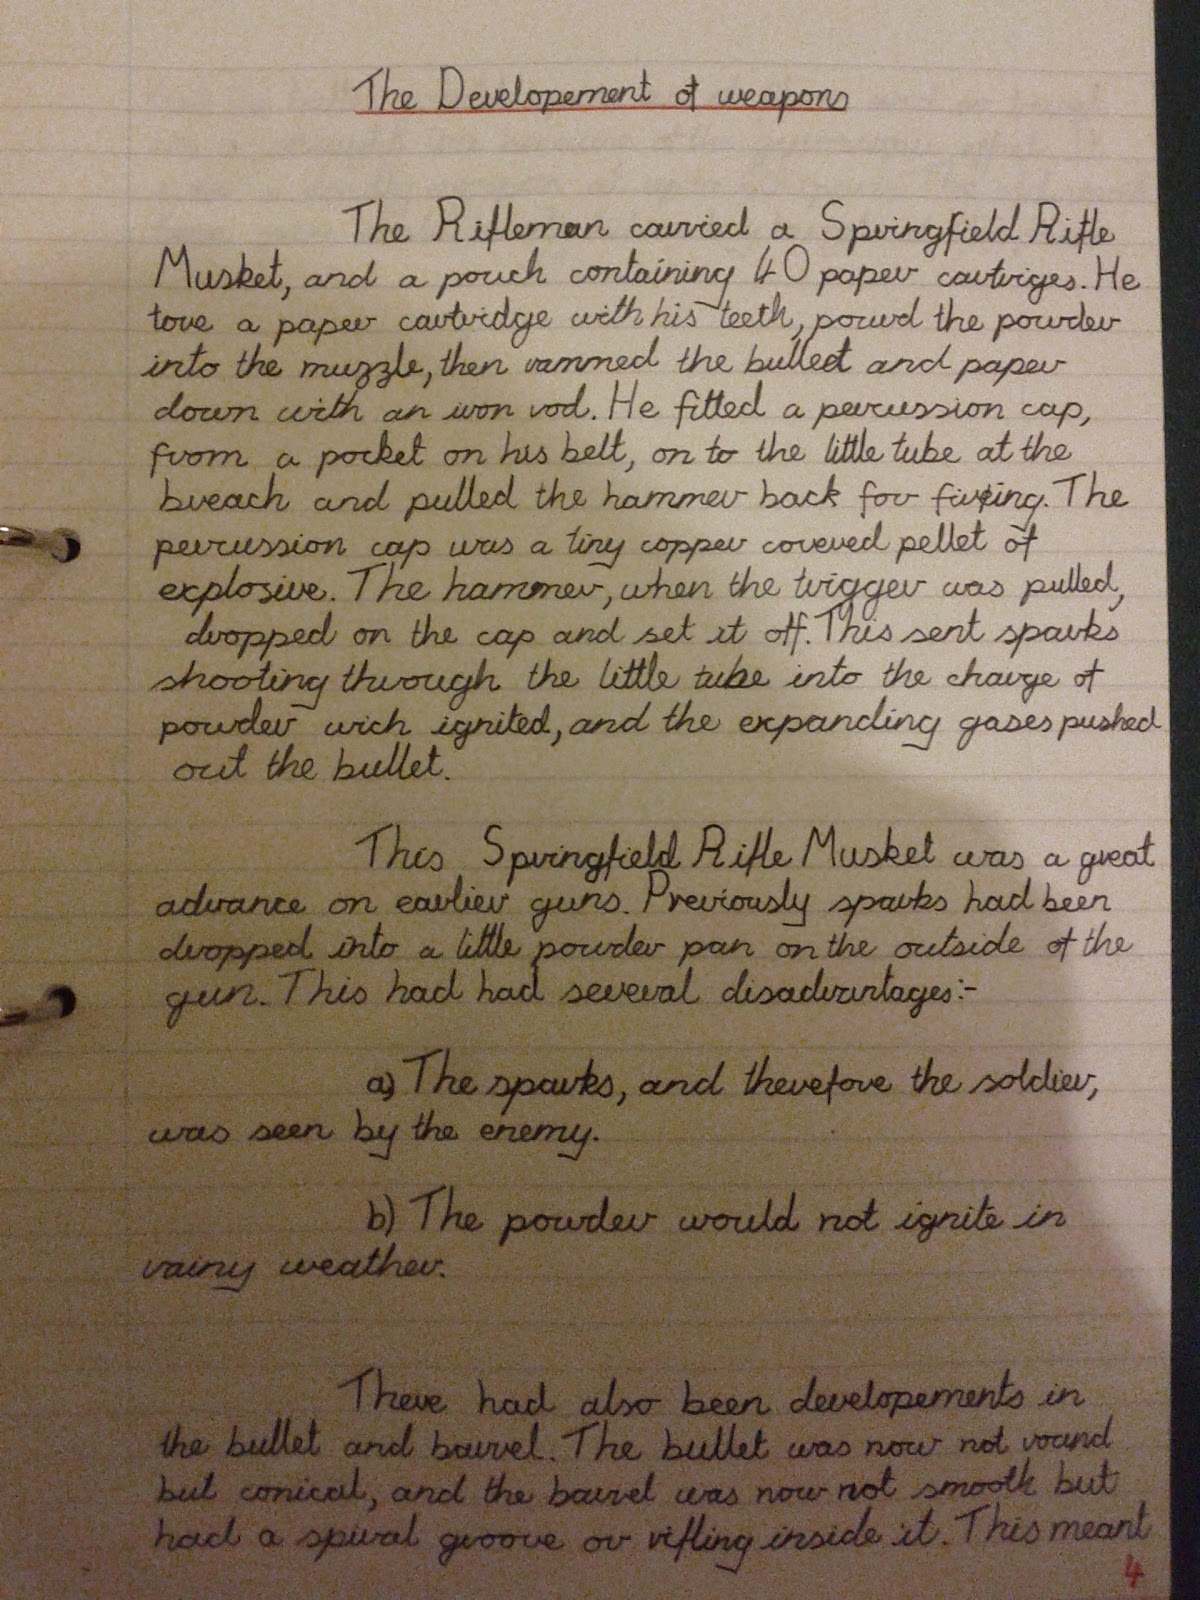 The Developement of weapons
The Rifleman carried a Springfield Rifle
Musket, and a pouch containing 40 paper cartriges. He
tore a paper cartridge with his teeth, pourd the powder
into the muzzle, then rammed the bullet and paper
down with an iron rod. He fitted a percussion cap,
from a pocket on his belt, on to the little tube at the
breach and pulled the hammer back for firing. The
percussion cap was a tiny copper covered pellet of
explosive. The hammer, when the trigger was pulled,
dropped on the cap and set it off. This sent sparks
shooting through the little tube into the charge of
powder wich ignited, and the expanding gases pushed
out the bullet.
This Springfield Rifle Musket was a great
advance on earlier guns. Previously sparks had been
dropped into a little powder pan on the outside of the
gun. This had had several disadvantages:-
a) The sparks, and therefore the soldier,
was seen by the enemy.
b) The powder would not ignite in
rainy weather.
There had also been developements in
the bullet and barrel. The bullet was now not round
but conical, and the barrel was now not smooth but
had a spiral groove or rifling inside it. This meant
4